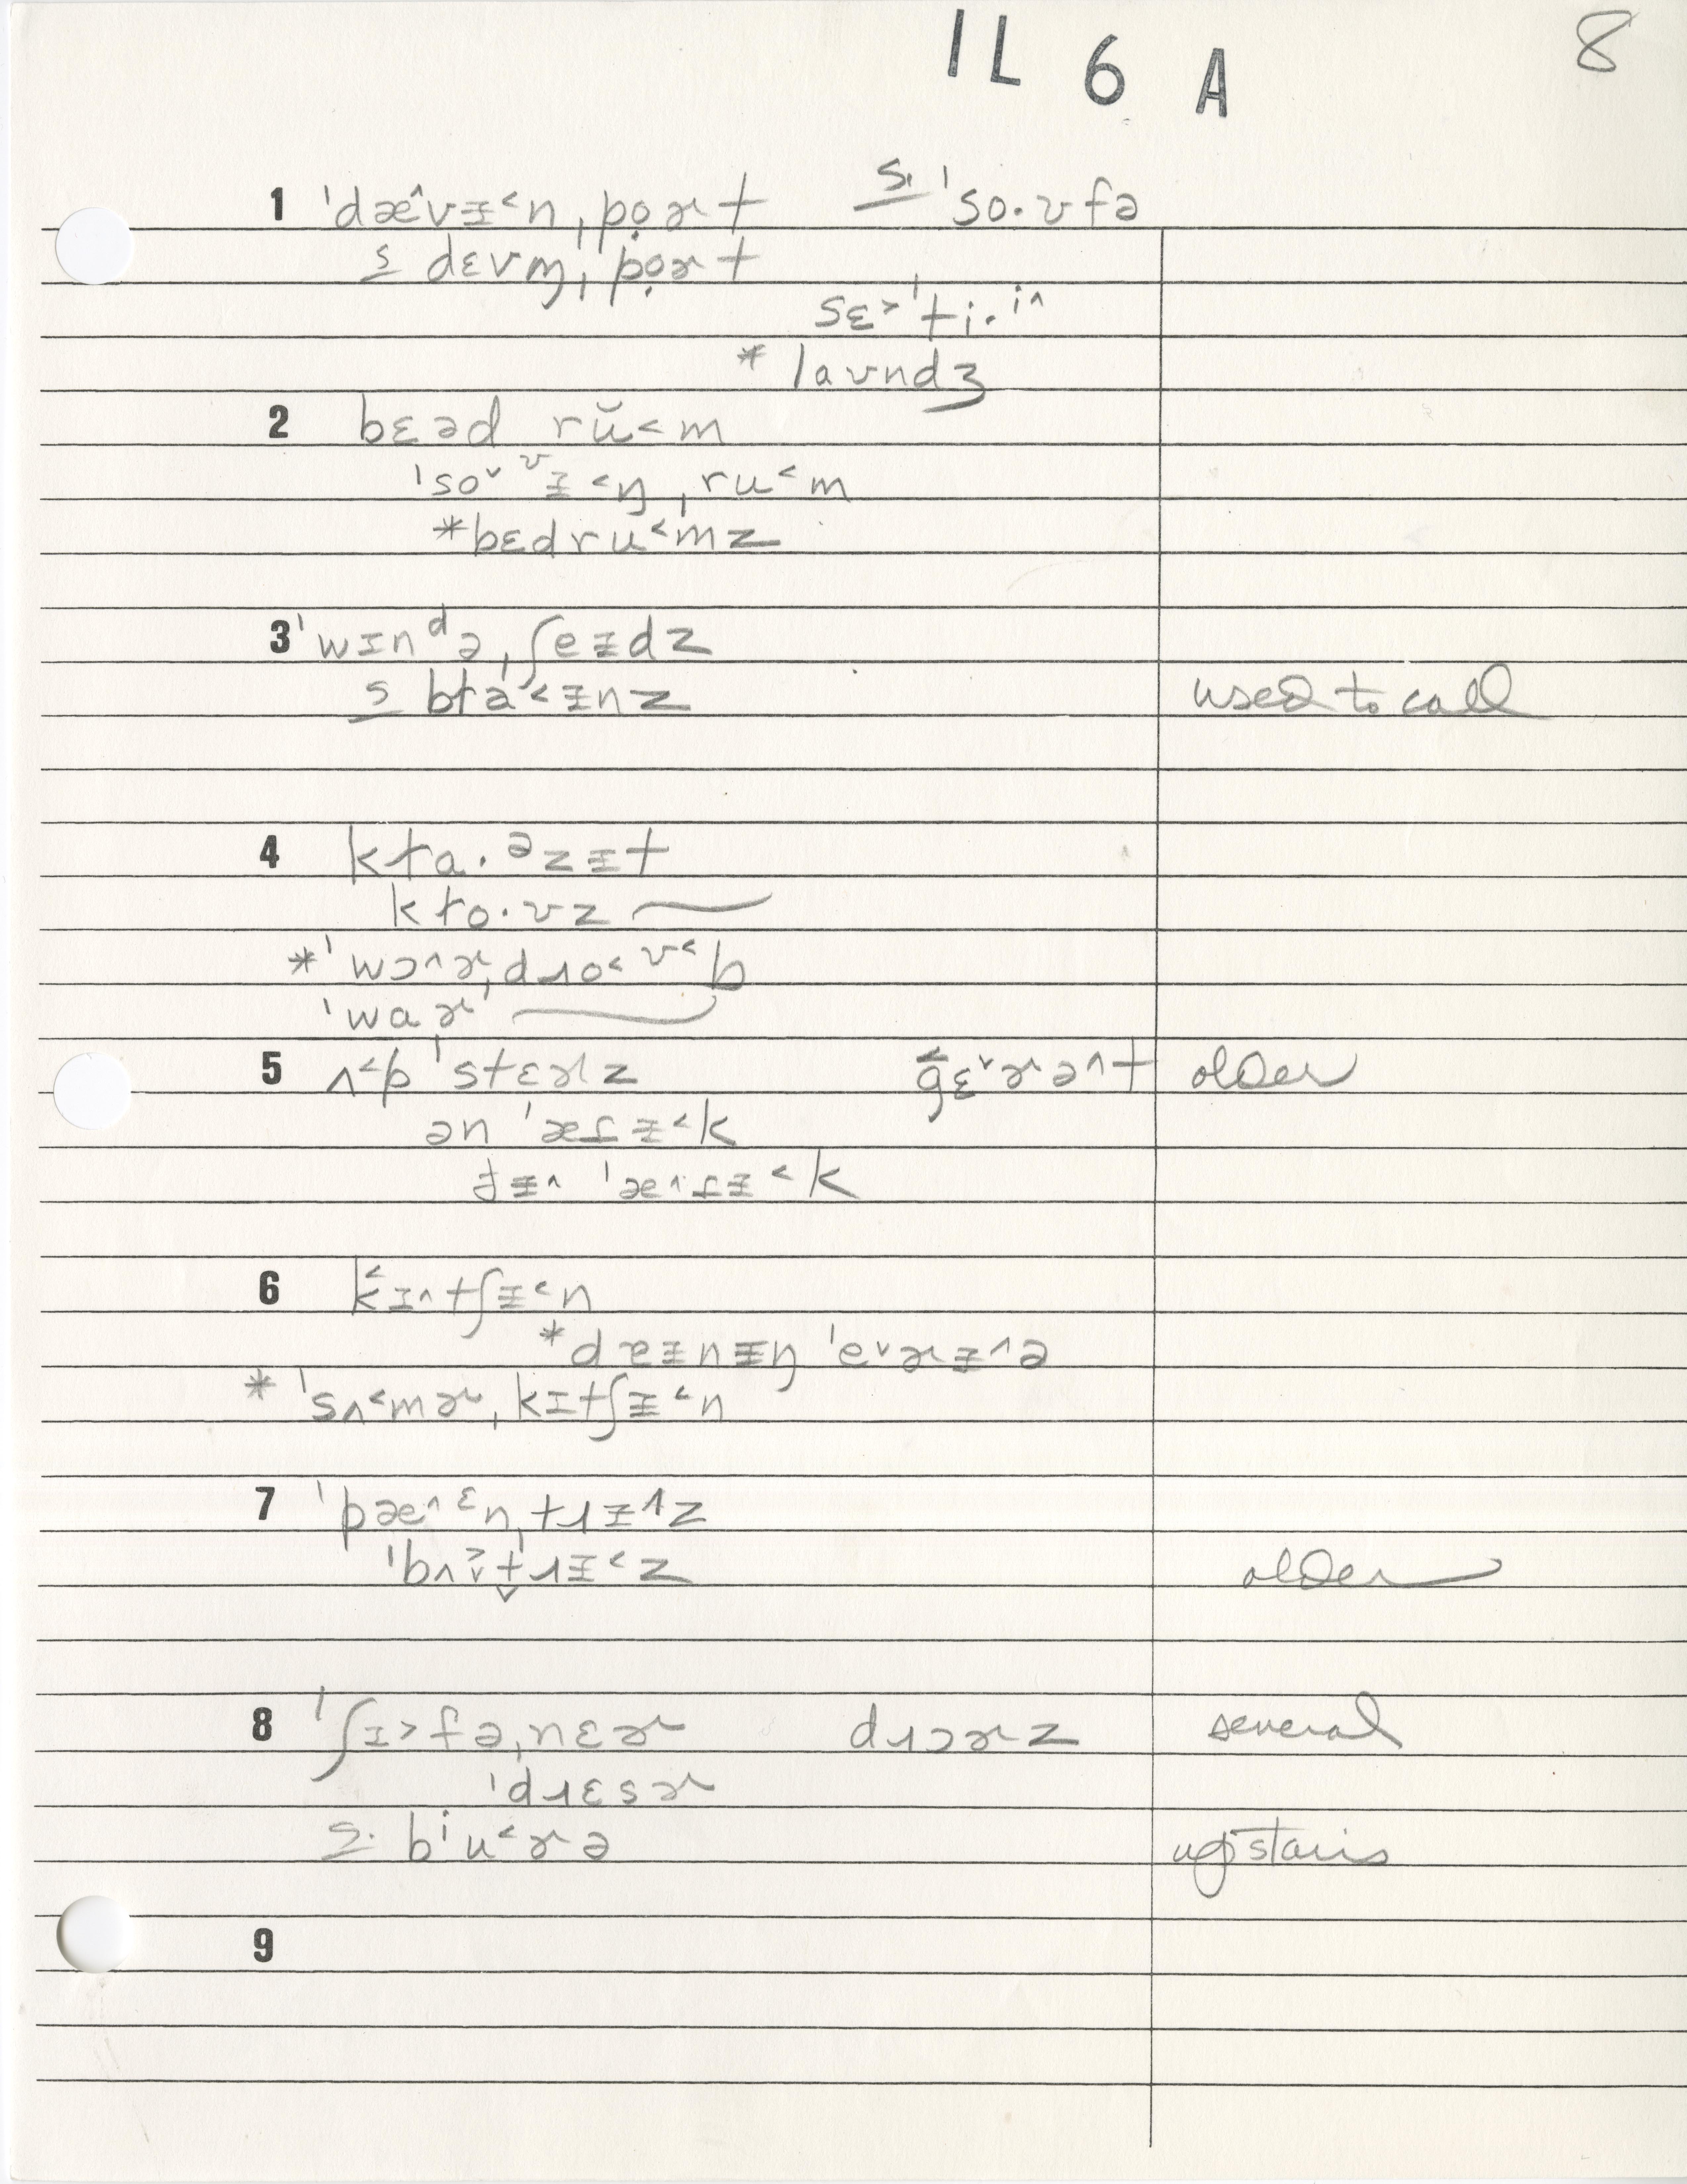 IL 6 A 8
1 ˈdæ^vᵻ˂n ˌpọɚt s. ˈso·ʊfə
s dɛvm̩ ˌpọɚt
sɛ˃ˈti·i^
* laʊndʒ
2 bɛəd rŭ˂m
ˈso˅ʊᵻ˂ŋ ˌru˂m
*bɛdru˂mz
3 ˈwɪnᵈə ˌʃeᵻdz
s blɑ˂ᵻnz used to call
4 klɑ·əzᵻt
klo·ʊz
*ˈwɔ^ɚˌdɹo˂ʊ˂b
ˈwɑɚ
5 ʌ˂p ˈstɛɚz gɛ˅ɚə^t older
ən ˈæɾᵻ˂k
ðᵻ^ ˈæ^ɾᵻ˂k
6 kɪ^tʃᵻ˂n
*dæᵻnᵻŋ ˈe˅ɚᵻ^ə
*ˈsʌ˂mɚ ˌkɪtʃᵻ˂n
7 ˈpæ^ɛn ˌtɹᵻ^z
ˈbʌt̬ɹᵻ˂z older
8 ˈʃɪ˃fəˌnɛɚ dɹɔɚz several
ˈdɹɛsɚ
s. bⁱu˂ɚə upstairs
9